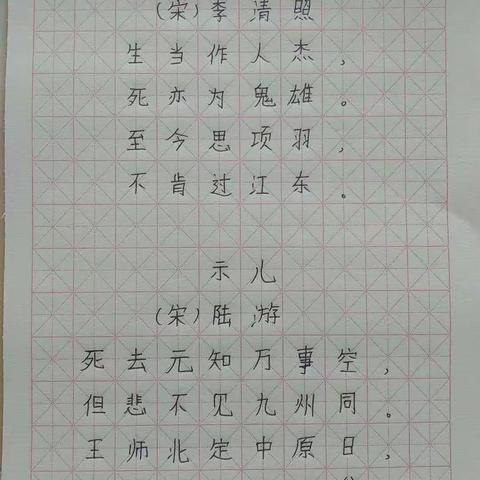 （宋）李清照
生当作人杰，
死亦为鬼雄。
至今思项羽，
不肯过江东。
示儿
（宋）陆游
死去元知万事空，
但悲不见九州同。
王师北定中原日，